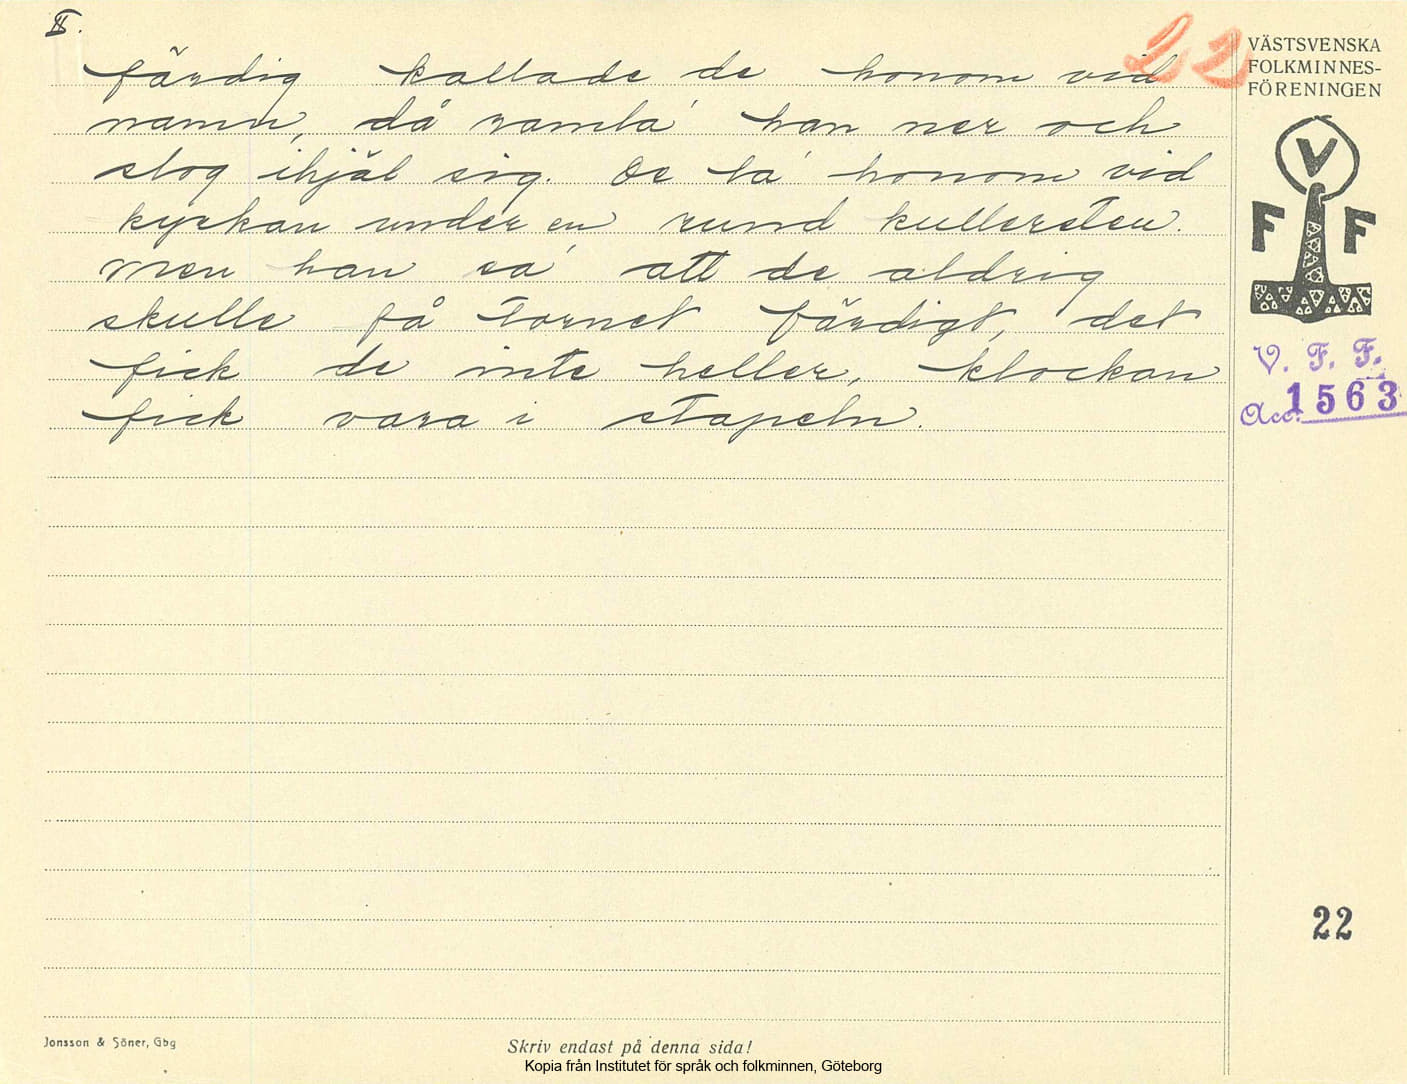 II.
22
färdig kallade de honom vid
namn, då ramla' han ner och
slog ihjäl sig. De la' honom vid
kyrkan under en rund kullersten.
Men han sa' att de aldrig
skulle få tornet färdigt, det
fick de inte heller, klockan
fick vara i stapeln.
VÄSTSVENSKA
FOLKMINNES-
FÖRENINGEN
V
F F
V. F. F.
Acc. 1563
22
Jonsson & Söner, Gbg
Skriv endast på denna sida!
Kopia från Institutet för språk och folkminnen, Göteborg